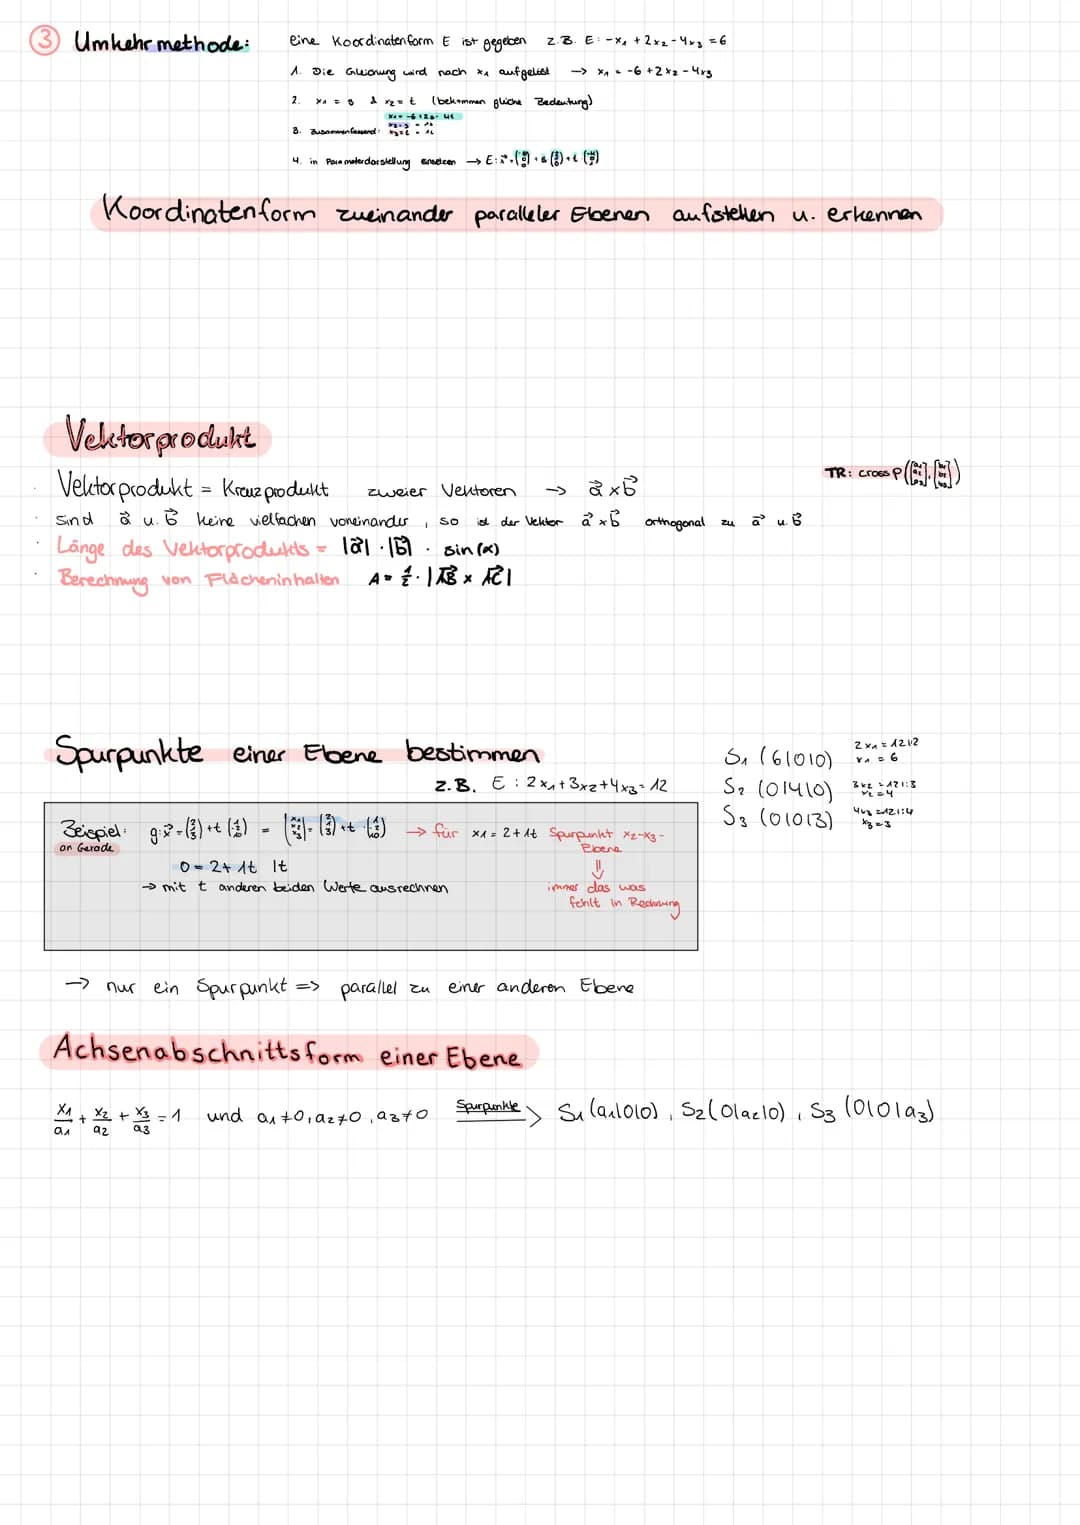 ③ Umkehrmethode: eine Koordinatenform E ist gegeben z.B. E: -x₁ + 2x₂ - 4x₃ = 6
1. Die Gleichung wird nach x₁ aufgelöst → x₁ = -6 + 2x₂ - 4x₃
2. x₁ = s & x₂ = t (bekommen gliche Bedeutung)
3. Zusammenfassend:
4. in Parameterdarstellung einsetzen → E: x⃗ =
Koordinatenform zueinander paralleler Ebenen aufstellen u. erkennen
Vektorprodukt
TR: crossP
Vektorprodukt = Kreuzprodukt zweier Vektoren → a⃗ × b⃗
sind a⃗ u. b⃗ keine vielfachen voneinander, so ist der Vektor a⃗ × b⃗ orthogonal zu a⃗ u. b⃗
Länge des Vektorprodukts = |a⃗| · |b⃗| · sin(α)
Berechnung von Flächeninhalten A = 1/2 · |AB⃗ × AC⃗|
Spurpunkte einer Ebene bestimmen
z.B. E: 2x₁ + 3x₂ + 4x₃ = 12
S₁ (6|0|0) 2x₁ = 12 |:2
x₁ = 6
S₂ (0|4|0) 3x₂ = 12 |:3
x₂ = 4
S₃ (0|0|3) 4x₃ = 12 |:4
x₃ = 3
Beispiel: g: x⃗ = → für x₁ = 2 + 1t Spurpunkt x₂-x₃-
an Gerade Ebene
0 = 2 + 1t |t ⇓
→ mit t anderen beiden Werte ausrechnen immer das was
fehlt in Rechnung
→ nur ein Spurpunkt => parallel zu einer anderen Ebene
Achsenabschnittsform einer Ebene
x₁/a₁ + x₂/a₂ + x₃/a₃ = 1 und a₁≠0, a₂≠0, a₃≠0 Spurpunkte → S₁(a₁|0|0), S₂(0|a₂|0), S₃(0|0|a₃)